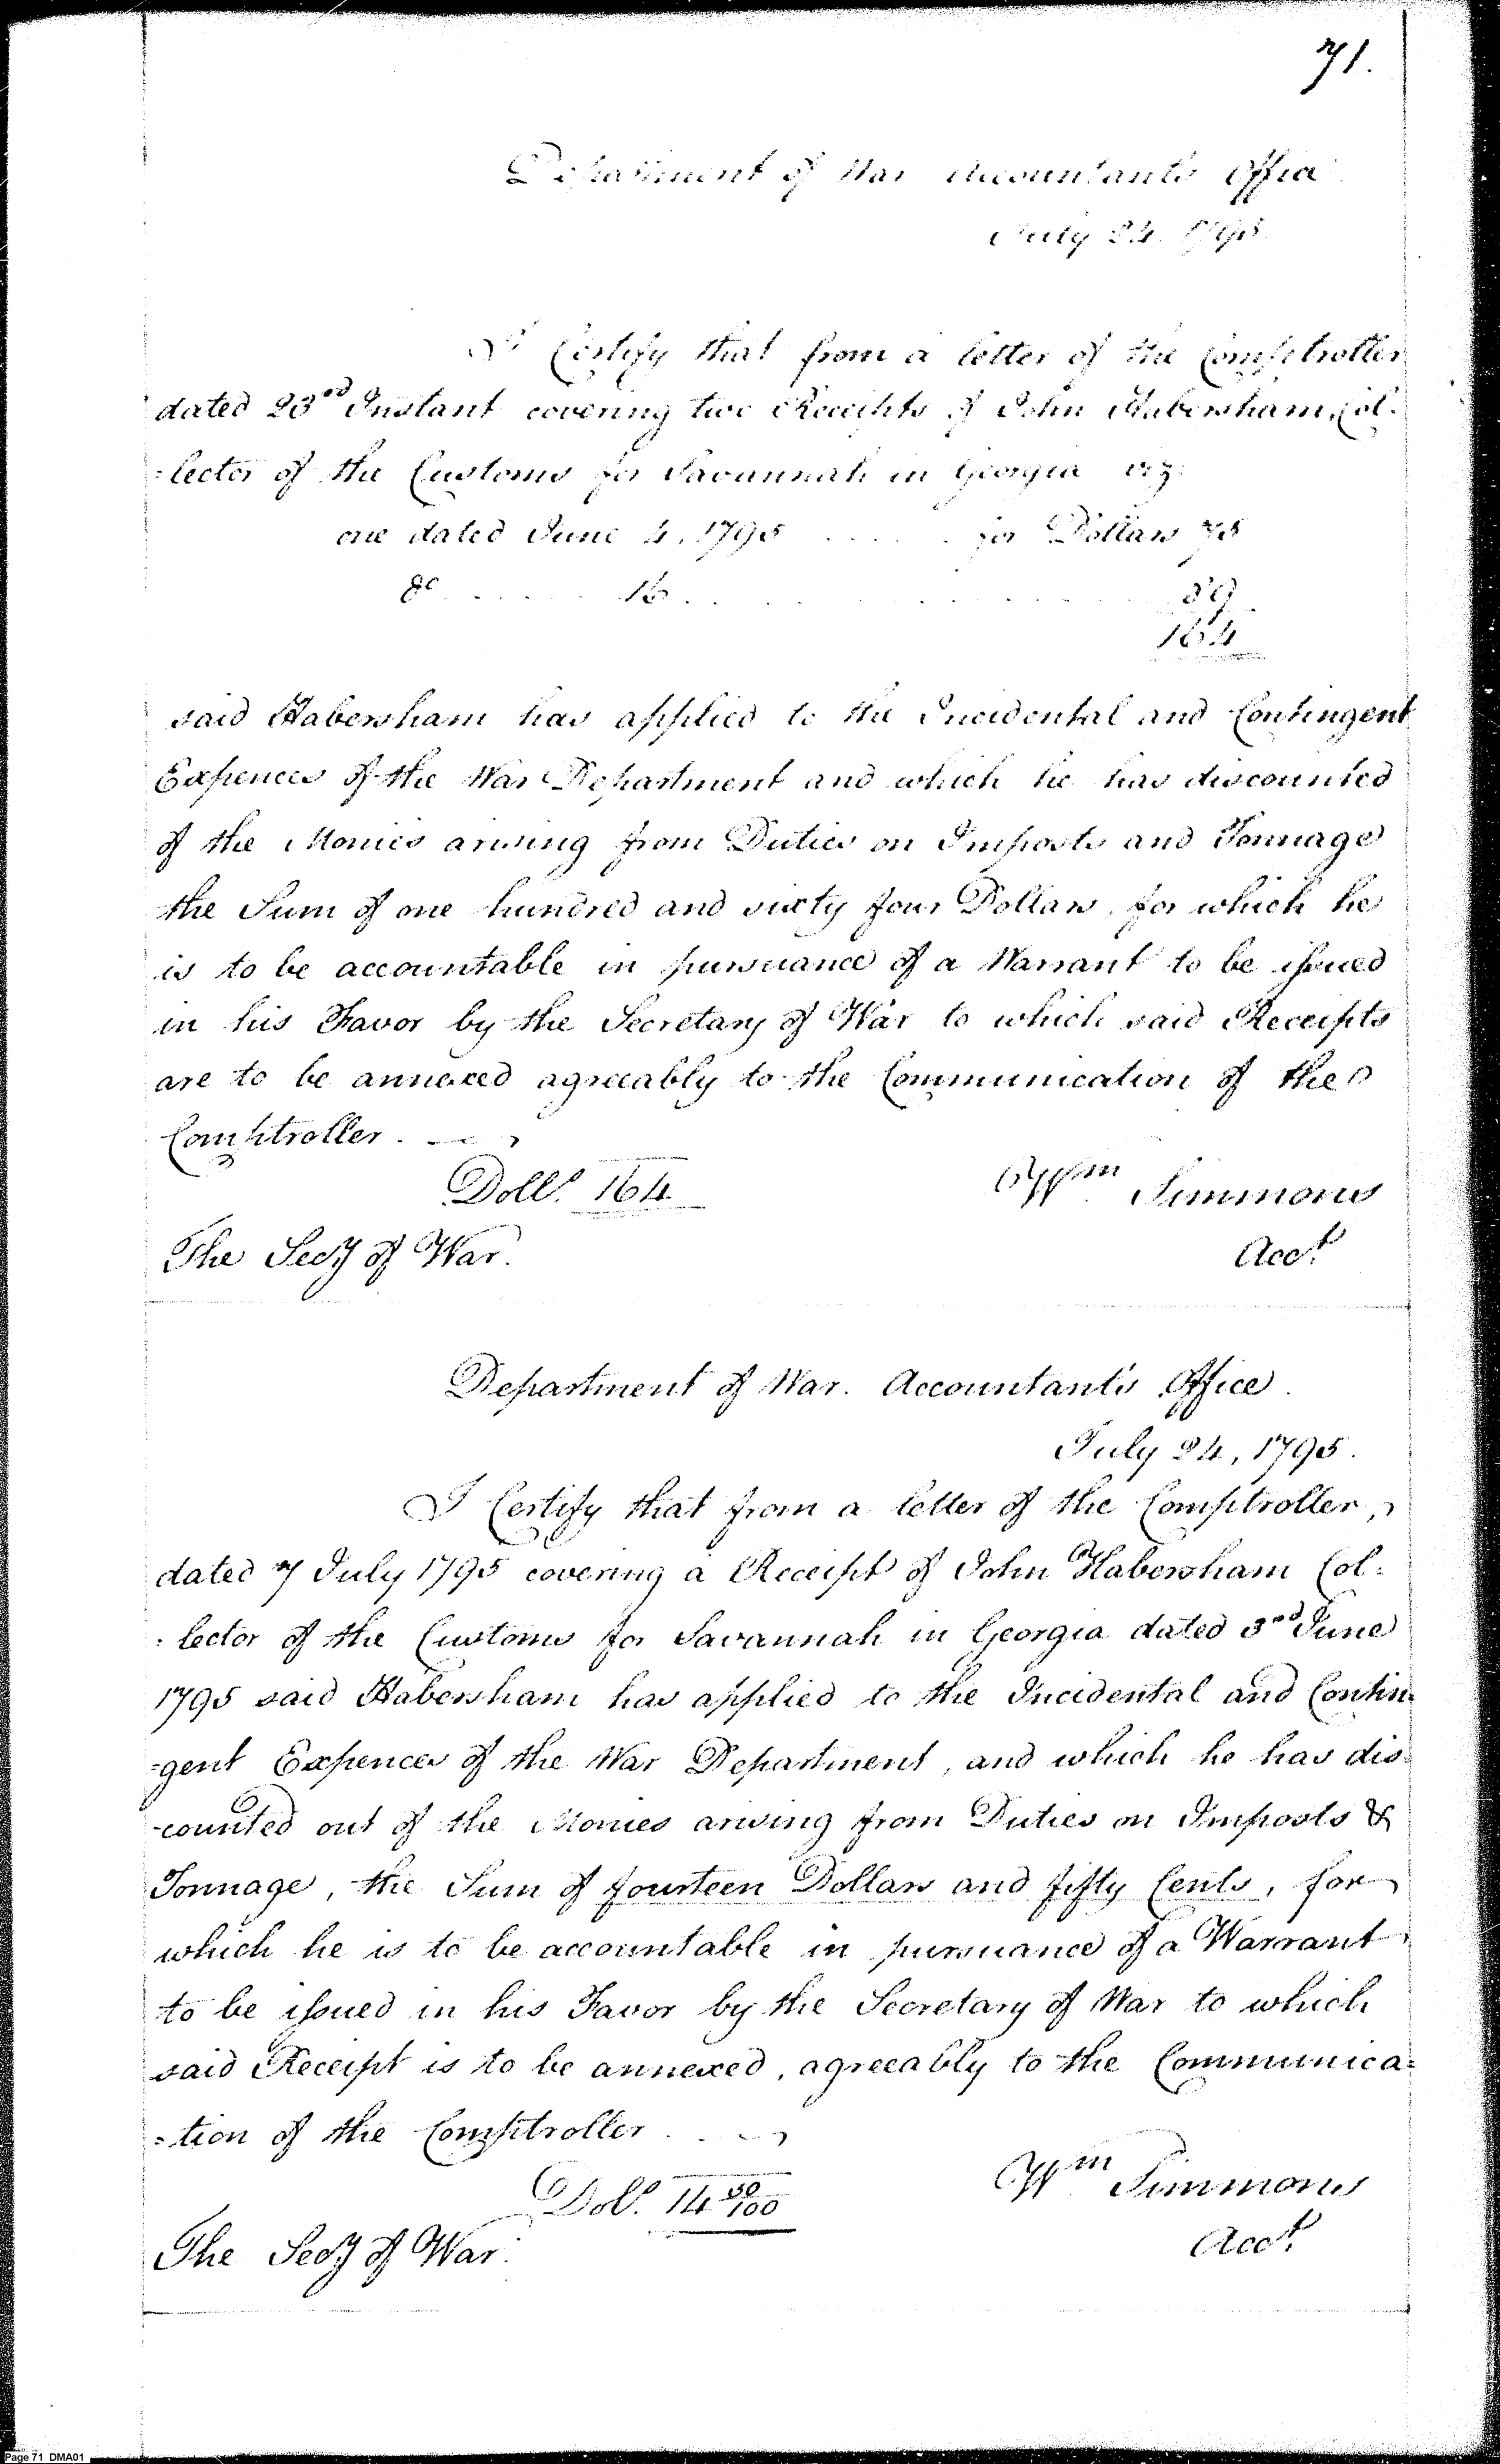 71.
Department of War Accountant's Office
July 24. 1795.
I Certify that from a letter of the Comptroller
dated 23rd Instant covering two Receipts of John Habersham, Col-
=lector of the Customs for Savannah in Georgia viz.
one dated June 4. 1795 ..... for Dollars 75
do ..... 16 ..... 89
164
said Habersham has applied to the Incidental and Contingent
Expences of the War Department and which he has discounted
of the Monies arising from Duties on Imposts and Tonnage
the Sum of one hundred and sixty four Dollars, for which he
is to be accountable in pursuance of a Warrant to be issued
in his Favor by the Secretary of War to which said Receipts
are to be annexed agreeably to the Communication of the
Comptroller.
Dolls. 164
Wm Simmons
The Secy of War.
Acct.
Department of War. Accountant's Office.
July 24, 1795.
I Certify that from a letter of the Comptroller,
dated 7 July 1795 covering a Receipt of John Habersham Col=
=lector of the Customs for Savannah in Georgia dated 3rd June
1795 said Habersham has applied to the Incidental and Contin=
=gent Expences of the War Department, and which he has dis=
-counted out of the Monies arising from Duties on Imposts &
Tonnage, the Sum of fourteen Dollars and fifty Cents, for
which he is to be accountable in pursuance of a Warrant
to be issued in his Favor by the Secretary of War to which
said Receipt is to be annexed, agreeably to the Communica=
=tion of the Comptroller
Dols. 14 50/100
Wm Simmons
The Secy of War.
Acct.
Page 71 DMA01